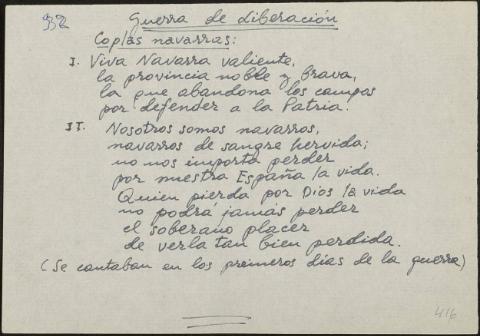 92
Guerra de Liberación
Coplas navarras:
I. Viva Navarra valiente,
la provincia noble y brava,
la que abandona los campos
por defender a la Patria!
II. Nosotros somos navarros,
navarros de sangre hervida;
no nos importa perder
por nuestra España la vida.
Quien pierda por Dios la vida
no podrá jamás perder
el soberano placer
de verla tan bien perdida.
(Se cantaban en los primeros días de la guerra)
416